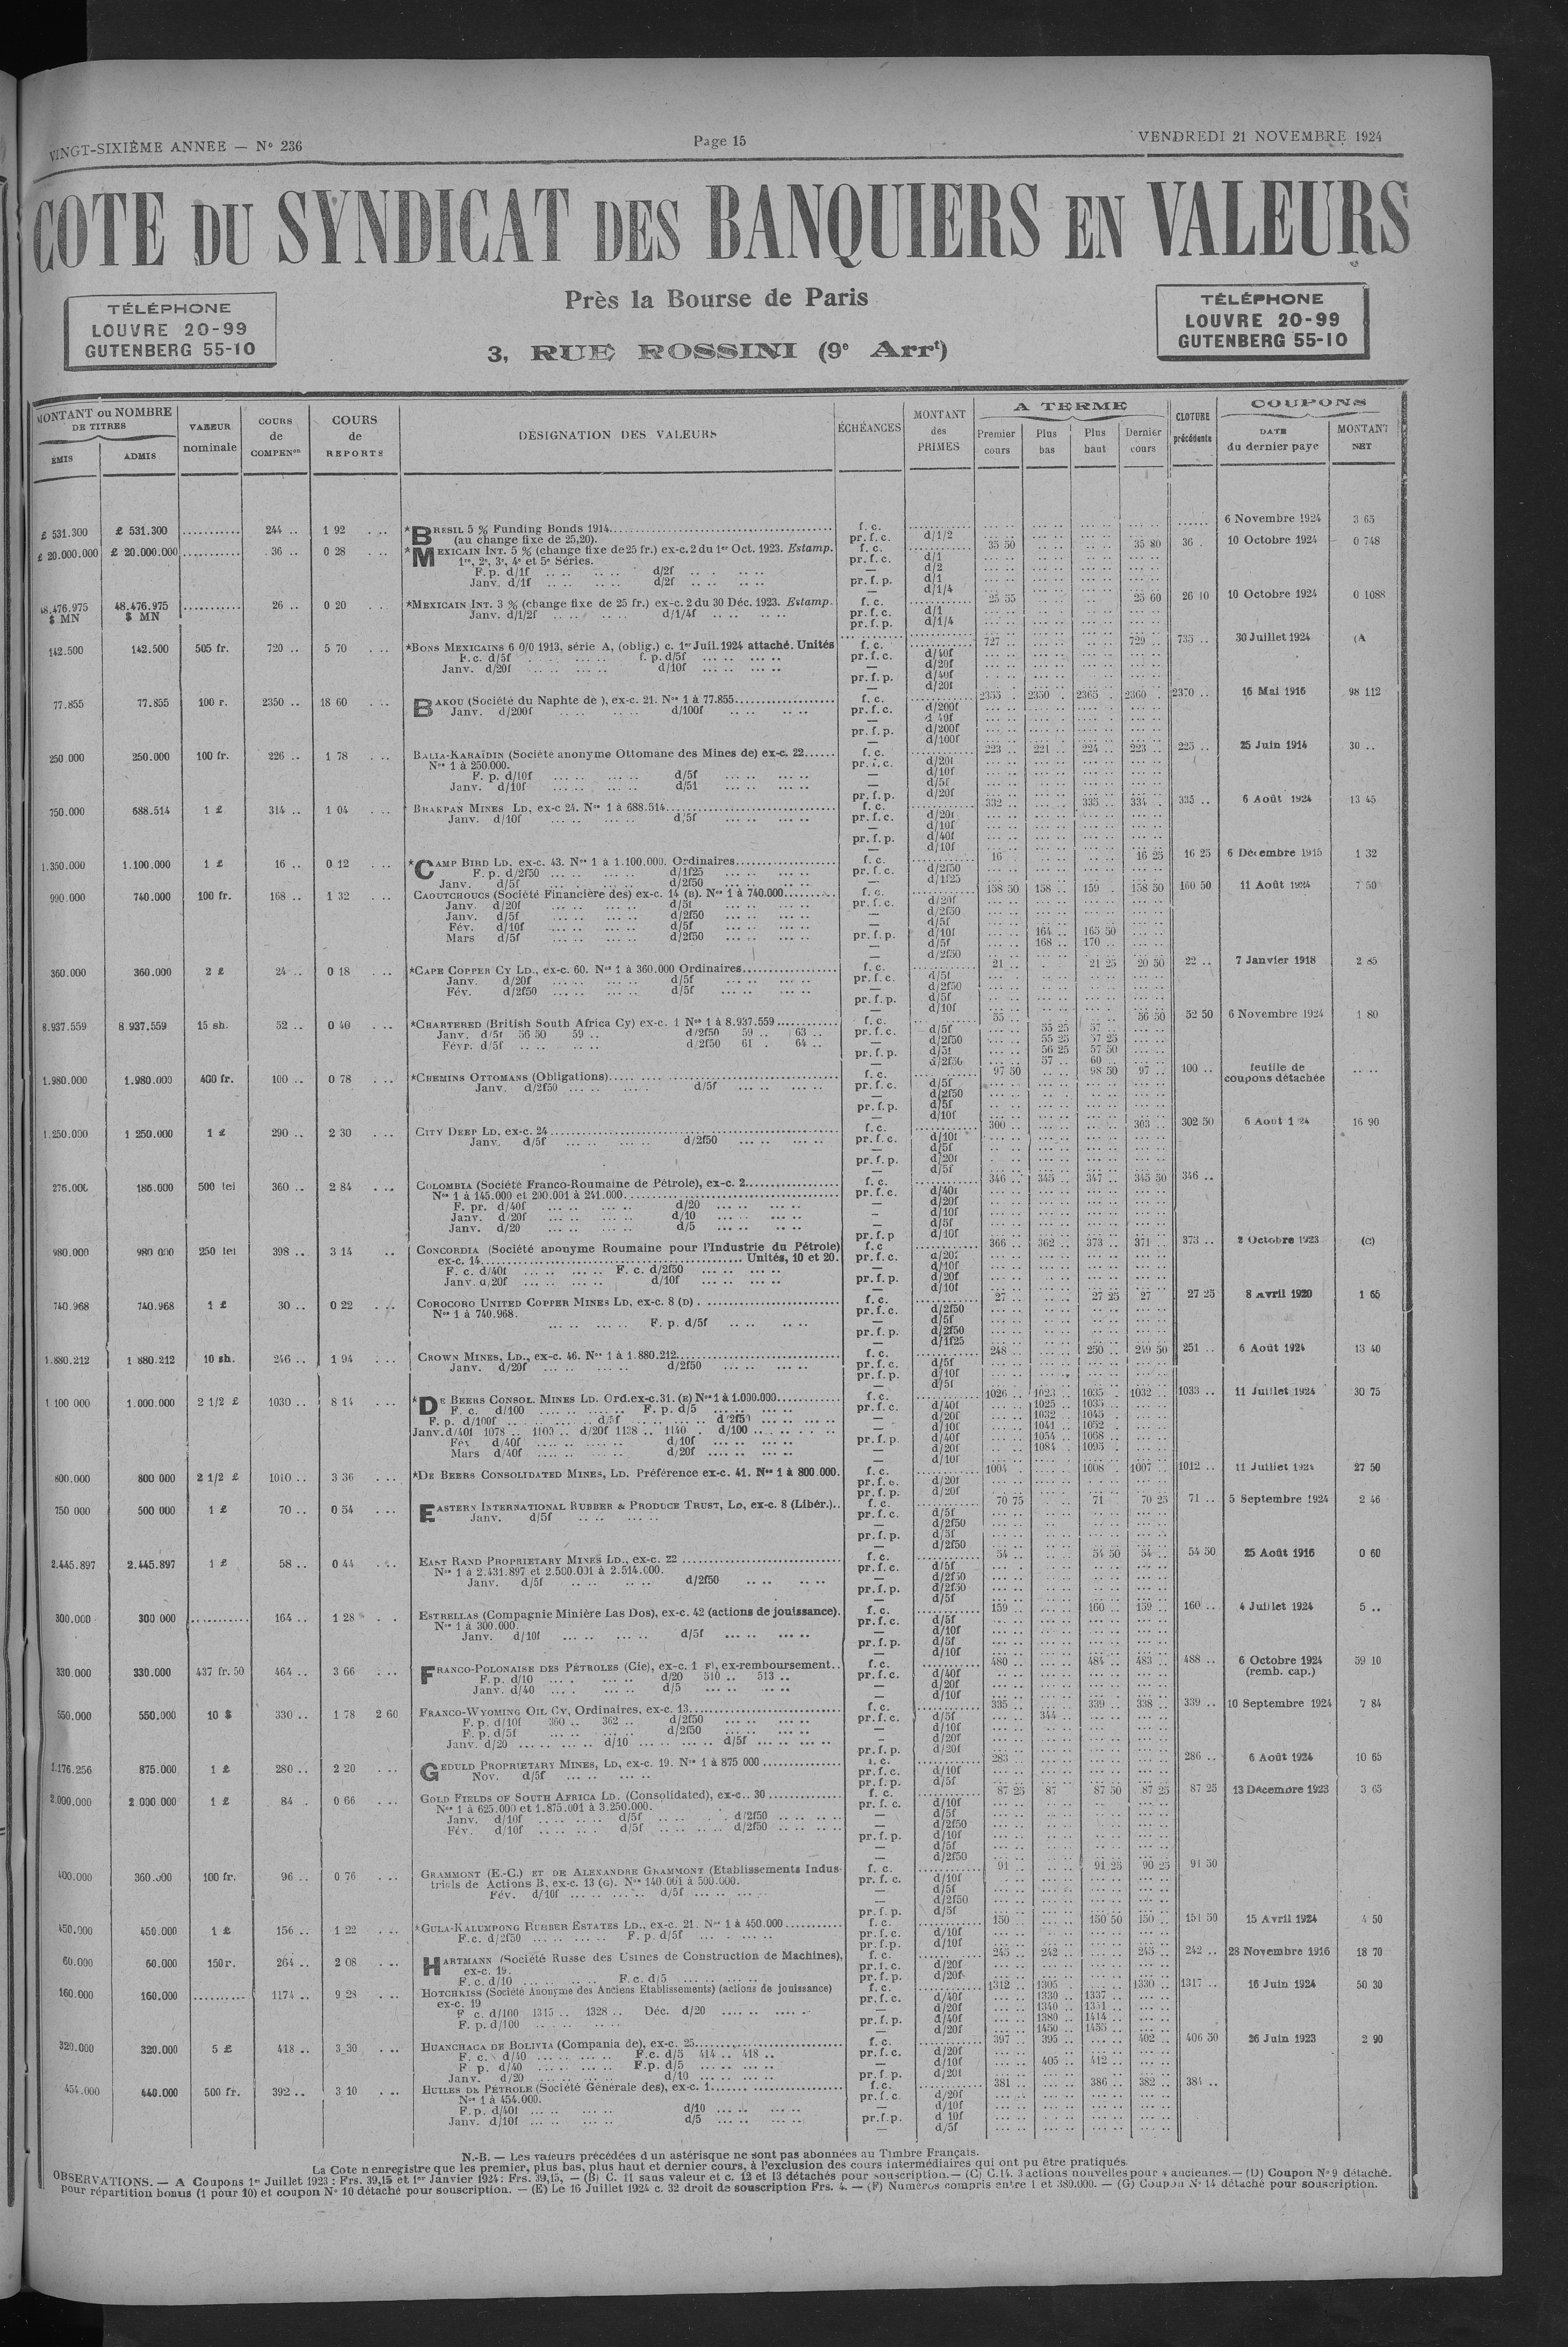 VINGT-SIXIÈME ANNEE — N° 236
Page 15
VENDREDI 21 NOVEMBRE 1924
COTE DU SYNDICAT DES BANQUIERS EN VALEURS
TÉLÉPHONE
LOUVRE 20-99
GUTENBERG 55-10
Près la Bourse de Paris
3, RUE ROSSINI (9e Arrt)
TÉLÉPHONE
LOUVRE 20-99
GUTENBERG 55-10
MONTANT ou NOMBRE DE TITRES
ÉMIS ADMIS
VALEUR nominale
COURS de COMPENon
COURS de REPORTS
DÉSIGNATION DES VALEURS
ÉCHÉANCES
MONTANT des PRIMES
A TERME
Premier cours Plus bas Plus haut Dernier cours
CLOTURE précédente
COUPONS
DATE du dernier payé MONTANT NET
£ 531.300 £ 531.300 .......... 244 .. 1 92 *BRESIL 5 % Funding Bonds 1914 f. c. 6 Novembre 1924 3 65
(au change fixe de 25,20). pr. f. c. d/1/2
£ 20.000.000 £ 20.000.000 .......... 36 .. 0 28 *MEXICAIN INT. 5 % (change fixe de 25 fr.) ex-c. 2 du 1er Oct. 1923. Estamp. f. c. 35 50 35 80 36 . 10 Octobre 1924 0 748
1re, 2e, 3e, 4e et 5e Séries. pr. f. c. d/1
F. p. d/1f d/2f — d/2
Janv. d/1f d/2f pr. f. p. d/1
— d/1/4
48.476.975 $ MN 48.476.975 $ MN .......... 26 .. 0 20 *MEXICAIN INT. 3 % (change fixe de 25 fr.) ex-c. 2 du 30 Déc. 1923. Estamp. f. c. 25 55 25 60 26 10 10 Octobre 1924 0 1088
Janv. d/1/2f d/1/4f pr. f. c. d/1
pr. f. p. d/1/4
142.500 142.500 505 fr. 720 .. 5 70 *BONS MEXICAINS 6 0/0 1913, série A, (oblig.) c. 1er Juil. 1924 attaché. Unités f. c. 727 .. 729 .. 735 .. 30 Juillet 1924 (A
F. c. d/5f f. p. d/5f pr. f. c. d/40f
Janv. d/20f d/10f — d/20f
pr. f. p. d/40f
— d/20f
77.855 77.855 100 r. 2350 .. 18 60 BAKOU (Société du Naphte de), ex-c. 21. Nos 1 à 77.855 f. c. 2355 .. 2350 . 2365 .. 2360 .. 2370 .. 16 Mai 1916 98 112
Janv. d/200f d/100f pr. f. c. d/200f
— d 40f
pr. f. p. d/200f
— d/100f
250.000 250.000 100 fr. 226 .. 1 78 BALIA-KARAÏDIN (Société anonyme Ottomane des Mines de) ex-c. 22 f. c. 223 .. 221 .. 224 .. 223 .. 225 .. 25 Juin 1914 30 ..
Nos 1 à 250.000. pr. f. c. d/20f
F. p. d/10f d/5f — d/10f
Janv. d/10f d/5f — d/5f
pr. f. p. d/20f
750.000 688.514 1 £ 314 .. 1 04 BRAKPAN MINES LD, ex-c 24. Nos 1 à 688.514 f. c. 332 .. 335 .. 334 .. 335 .. 6 Août 1924 13 45
Janv. d/10f d/5f pr. f. c. d/20f
— d/10f
pr. f. p. d/40f
— d/10f
1.350.000 1.100.000 1 £ 16 .. 0 12 *CAMP BIRD LD. ex-c. 43. Nos 1 à 1.100.000. Ordinaires f. c. 16 16 25 16 25 6 Décembre 1915 1 32
F. p. d/2f50 d/1f25 pr. f. c. d/2f50
Janv. d/5f d/2f50 — d/1f25
990.000 740.000 100 fr. 168 .. 1 32 CAOUTCHOUCS (Société Financière des) ex-c. 14 (B). Nos 1 à 740.000 f. c. 158 50 158 .. 159 . 158 50 160 50 11 Août 1924 7 50
Janv. d/20f d/5f pr. f. c. d/20f
Janv. d/5f d/2f50 — d/2f50
Fév. d/10f d/5f — d/5f
Mars d/5f d/2f50 pr. f. p. d/10f 164 .. 165 50
— d/5f 168 .. 170 ..
— d/2f50
360.000 360.000 2 £ 24 .. 0 18 *CAPE COPPER CY LD., ex-c. 60. Nos 1 à 360.000 Ordinaires f. c. 21 .. 21 25 20 50 22 .. 7 Janvier 1918 2 85
Janv. d/20f d/5f pr. f. c. d/5f
Fév. d/2f50 d/5f — d/2f50
pr. f. p. d/5f
— d/10f
8.937.559 8.937.559 15 sh. 52 .. 0 40 *CHARTERED (British South Africa Cy) ex-c. 1 Nos 1 à 8.937.559 f. c. 55 .. 56 50 52 50 6 Novembre 1924 1 80
Janv. d/5f 56 50 59 .. d/2f50 59 .. 63 .. pr. f. c. d/5f 55 25 57 ..
Févr. d/5f d/2f50 61 . 64 .. — d/2f50 55 25 57 25
pr. f. p. d/5f 56 25 57 50
— d/2f50 57 .. 60 ..
1.980.000 1.980.000 400 fr. 100 .. 0 78 *CHEMINS OTTOMANS (Obligations) f. c. 97 50 98 50 97 .. 100 .. feuille de coupons détachée
Janv. d/2f50 d/5f pr. f. c. d/5f
— d/2f50
pr. f. p. d/5f
— d/10f
1.250.000 1 250.000 1 £ 290 .. 2 30 CITY DEEP LD. ex-c. 24 f. c. 300 .. 303 .. 302 50 6 Août 1 24 16 90
Janv. d/5f d/2f50 pr. f. c. d/10f
— d/5f
pr. f. p. d/20f
— d/5f
276.000 186.000 500 lei 360 .. 2 84 COLOMBIA (Société Franco-Roumaine de Pétrole), ex-c. 2 f. c. 346 .. 345 .. 347 .. 345 50 346 ..
Nos 1 à 145.000 et 200.001 à 241.000 pr. f. c. d/40f
F. pr. d/40f d/20 — d/20f
Janv. d/20f d/10 — d/10f
Janv. d/20 d/5 — d/5f
pr. f. p d/10f
980.000 980 000 250 lei 398 .. 3 14 CONCORDIA (Société anonyme Roumaine pour l'Industrie du Pétrole) f. c 366 .. 362 .. 373 .. 371 .. 373 .. 2 Octobre 1923 (C)
ex-c. 14 Unités, 10 et 20. pr. f. c. d/20f
F. c. d/40f F. c. d/2f50 — d/10f
Janv. d/20f d/10f pr. f. p. d/20f
— d/10f
740.968 740.968 1 £ 30 .. 0 22 COROCORO UNITED COPPER MINES LD, ex-c. 8 (D) f. c. 27 .. 27 25 27 27 25 8 Avril 1920 1 65
Nos 1 à 740.968. pr. f. c. d/2f50
F. p. d/5f — d/5f
pr. f. p. d/2f50
— d/1f25
1.880.212 1 880.212 10 sh. 246 .. 1 94 CROWN MINES, LD., ex-c. 46. Nos 1 à 1.880.212 f. c. 248 .. 250 .. 249 50 251 .. 6 Août 1924 13 40
Janv. d/20f d/2f50 pr. f. c. d/5f
pr. f. p. d/10f
— d/5f
1 100 000 1.000.000 2 1/2 £ 1030 .. 8 14 *DE BEERS CONSOL. MINES LD. Ord. ex-c. 31. (E) Nos 1 à 1.000.000 f. c. 1026 .. 1023 .. 1035 .. 1032 .. 1033 .. 11 Juillet 1924 30 75
F. c. d/100 F. p. d/5 pr. f. c. d/40f 1025 .. 1035 ..
F. p. d/100f d/5f d/2f50 — d/20f 1032 .. 1045 .
Janv. d/40f 1078 .. 1100 .. d/20f 1138 .. 1140 . d/100 — d/10f 1041 .. 1052 ..
Fév. d/40f d/10f pr. f. p. d/40f 1054 .. 1068 ..
Mars d/40f d/20f — d/20f 1084 . 1095 ..
— d/10f
800.000 800 000 2 1/2 £ 1010 .. 3 36 *DE BEERS CONSOLIDATED MINES, LD. Préférence ex-c. 41. Nos 1 à 800.000. f. c. 1004 . 1008 . 1007 .. 1012 .. 11 Juillet 1924 27 50
pr. f. c. d/20f
pr. f. p. d/20f
750 000 500 000 1 £ 70 .. 0 54 EASTERN INTERNATIONAL RUBBER & PRODUCE TRUST, LD, ex-c. 8 (Libér.) f. c. 70 75 71 70 25 71 .. 5 Septembre 1924 2 46
Janv. d/5f pr. f. c. d/5f
— d/2f50
pr. f. p. d/5f
— d/2f50
2.445.897 2.445.897 1 £ 58 .. 0 44 EAST RAND PROPRIETARY MINES LD., ex-c. 22 f. c. 54 .. 54 50 54 .. 54 50 25 Août 1916 0 60
Nos 1 à 2.431.897 et 2.500.001 à 2.514.000. pr. f. c. d/5f
Janv. d/5f d/2f50 — d/2f50
pr. f. p. d/2f50
— d/5f
300.000 300 000 .......... 164 .. 1 28 ESTRELLAS (Compagnie Minière Las Dos), ex-c. 42 (actions de jouissance). f. c. 159 .. 160 .. 159 .. 160 .. 4 Juillet 1924 5 ..
Nos 1 à 300.000. pr. f. c. d/5f
Janv. d/10f d/5f — d/10f
pr. f. p. d/5f
— d/10f
330.000 330.000 437 fr. 50 464 .. 3 66 FRANCO-POLONAISE DES PÉTROLES (Cie), ex-c. 1 F), ex-remboursement f. c. 480 .. 484 .. 483 .. 488 .. 6 Octobre 1924 59 10
F. p. d/10 d/20 510 .. 513 .. pr. f. c. d/40f (remb. cap.)
Janv. d/40 d/5 — d/20f
— d/10f
550.000 550.000 10 $ 330 .. 1 78 2 60 FRANCO-WYOMING OIL CY, Ordinaires, ex-c. 13 f. c. 335 .. 339 . 338 .. 339 .. 10 Septembre 1924 7 84
F. p. d/10f 360 .. 362 .. d/2f50 pr. f. c. d/5f 344 ..
F. p. d/5f d/2f50 — d/10f
Janv. d/20 d/10 d/5f — d/20f
pr. f. p. d/20f
1.176.256 875.000 1 £ 280 .. 2 20 GEDULD PROPRIETARY MINES, LD, ex-c. 19. Nos 1 à 875 000 f. c. 283 .. 286 .. 6 Août 1924 10 65
Nov. d/5f pr. f. c. d/10f
pr. f. p. d/5f
2.000.000 2.000 000 1 £ 84 . 0 66 GOLD FIELDS OF SOUTH AFRICA LD. (Consolidated), ex-c. 30 f. c. 87 25 87 87 50 87 25 87 25 13 Décembre 1923 3 65
Nos 1 à 625.000 et 1.875.001 à 3.250.000. pr. f. c. d/10f
Janv. d/10f d/5f d/2f50 — d/5f
Fév. d/10f d/5f d/2f50 — d/2f50
pr. f. p. d/10f
— d/5f
— d/2f50
400.000 360.000 100 fr. 96 .. 0 76 GRAMMONT (E.-C.) ET DE ALEXANDRE GRAMMONT (Etablissements Indus- f. c. 91 .. 91 25 90 25 91 50
triels de Actions B, ex-c. 13 (G). Nos 140.001 à 500.000. pr. f. c. d/10f
Fév. d/10f d/5f — d/5f
— d/2f50
pr. f. p. d/5f
450.000 450.000 1 £ 156 .. 1 22 *GULA-KALUMPONG RUBBER ESTATES LD., ex-c. 21. Nos 1 à 450.000 f. c. 150 .. 150 50 150 .. 151 50 15 Avril 1924 4 50
F.c. d/2f50 F. p. d/5f pr. f. c. d/10f
pr. f. p. d/10f
60.000 60.000 150 r. 264 .. 2 08 HARTMANN (Société Russe des Usines de Construction de Machines), f. c. 245 .. 242 .. 245 .. 242 .. 28 Novembre 1916 18 70
ex-c. 19. pr. f. c. d/20f
F. c. d/10 F. c. d/5 pr. f. p. d/20f
160.000 160.000 .......... 1174 .. 9 28 HOTCHKISS (Société Anonyme des Anciens Etablissements) (actions de jouissance) f. c. 1312 .. 1305 .. 1330 .. 1317 .. 16 Juin 1924 50 30
ex-c. 19 pr. f. c. d/40f 1330 .. 1337 ..
F c. d/100 1315 .. 1328 .. Déc. d/20 — d/20f 1340 .. 1351 ..
F. p. d/100 pr. f. p. d/40f 1380 .. 1414 ..
— d/20f 1450 .. 1455 ..
320.000 320.000 5 £ 418 .. 3 30 HUANCHACA DE BOLIVIA (Compania de), ex-c. 25 f. c. 397 .. 395 .. 402 .. 406 50 26 Juin 1923 2 90
F. c. d/40 F.c. d/5 414 .. 418 .. pr. f. c. d/20f
F. p. d/40 F.p. d/5 — d/10f 405 .. 412 ..
Janv. d/20 d/10 pr. f. p. d/20f
454.000 440.000 500 fr. 392 .. 3 10 HUILES DE PÉTROLE (Société Générale des), ex-c. 1 f. c. 381 .. 386 .. 382 .. 384 ..
Nos 1 à 454.000. pr. f. c. d/20f
F. p. d/40f d/10 — d/10f
Janv. d/10f d/5 pr.f.p. d 10f
— d/5f
N.-B. — Les valeurs précédées d un astérisque ne sont pas abonnées au Timbre Français.
La Cote n enregistre que les premier, plus bas, plus haut et dernier cours, à l'exclusion des cours intermédiaires qui ont pu être pratiqués
OBSERVATIONS. — A Coupons 1er Juillet 1923 : Frs. 39,15 et 1er Janvier 1924 : Frs. 39,15, — (B) C. 11 sans valeur et c. 12 et 13 détachés pour souscription. — (C) C. 14. 3 actions nouvelles pour 4 anciennes. — (D) Coupon N° 9 détaché.
pour répartition bonus (1 pour 10) et coupon N° 10 détaché pour souscription. — (E) Le 16 Juillet 1924 c. 32 droit de souscription Frs. 4. — (F) Numéros compris entre 1 et 380.000. — (G) Coupon N° 14 détaché pour souscription.